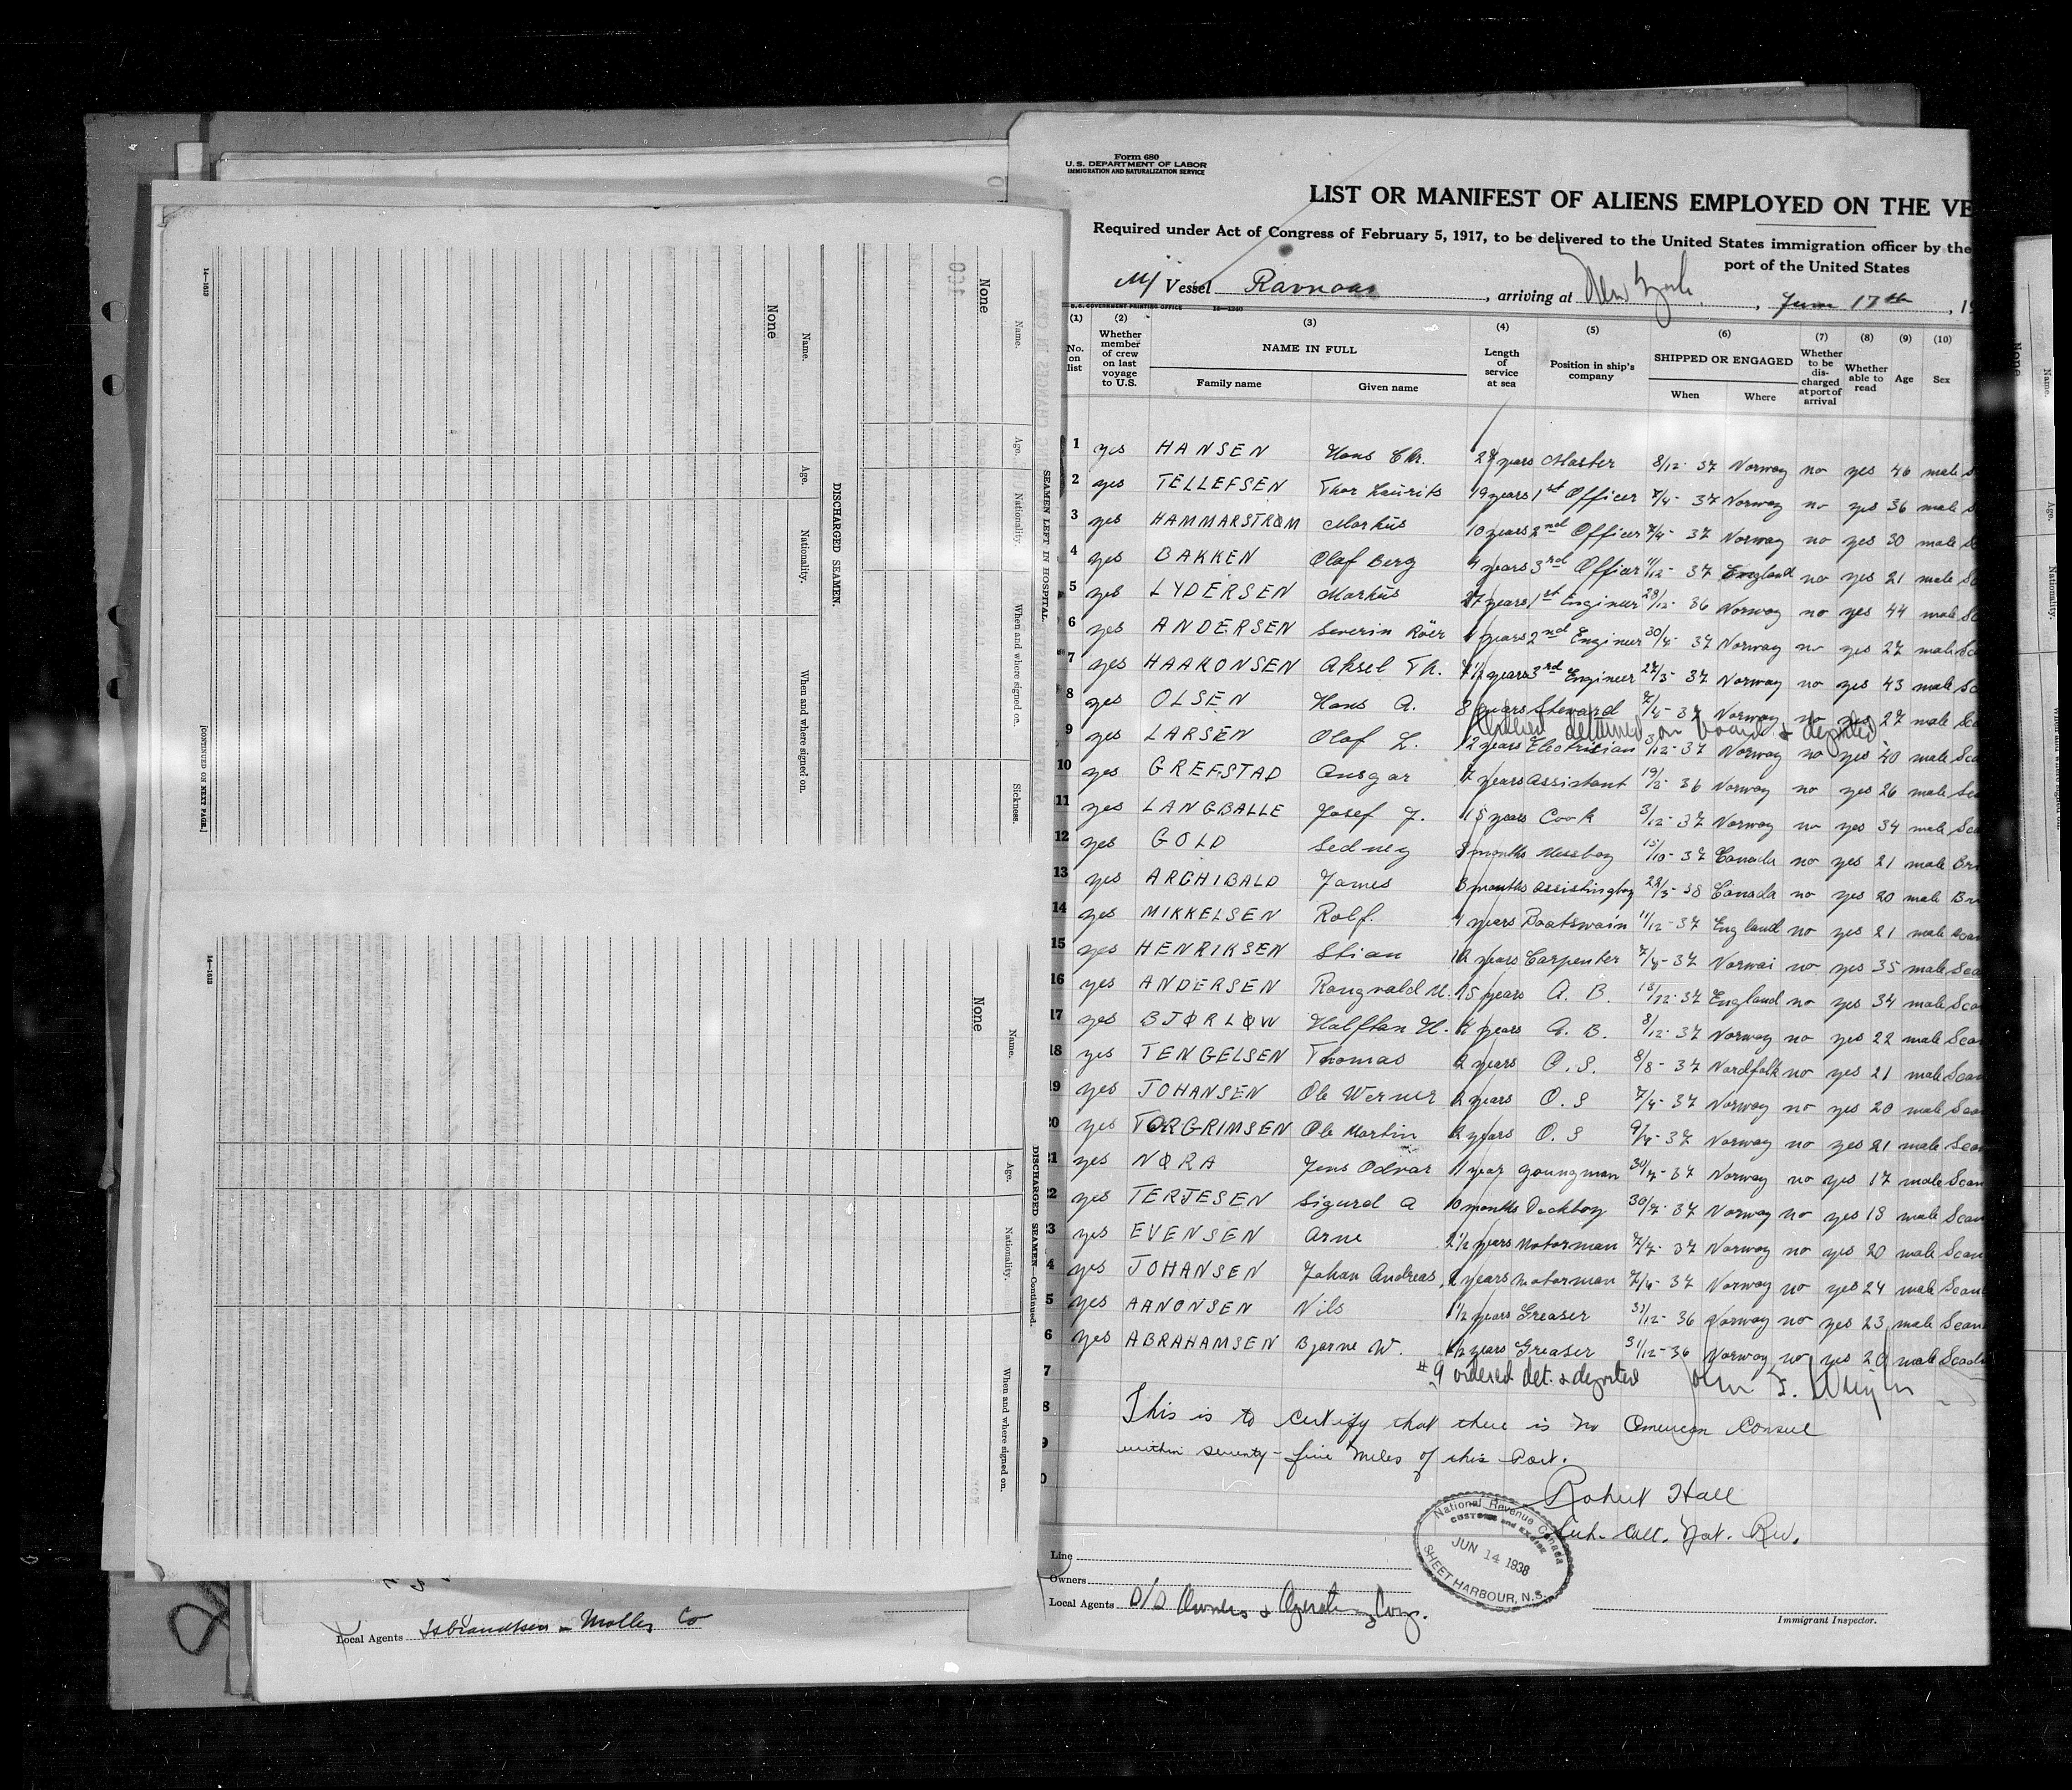 14—1613
[CONTINUED ON NEXT PAGE.]
Name.
Age.
Nationality.
When and where signed on.
None
DISCHARGED SEAMEN.
Name.
Age.
Nationality.
When and where signed on.
Sickness.
None
SEAMEN LEFT IN HOSPITAL.
14—1613
Name.
Age.
Nationality.
When and where signed on.
None
DISCHARGED SEAMEN—Continued.
Local Agents Isbrandtsen - Moller Co
Form 680
U. S. DEPARTMENT OF LABOR
IMMIGRATION AND NATURALIZATION SERVICE
LIST OR MANIFEST OF ALIENS EMPLOYED ON THE VE
Required under Act of Congress of February 5, 1917, to be delivered to the United States immigration officer by the
port of the United States
M/ Vessel Ravnaas, arriving at New York, June 17th, 19
U. S. GOVERNMENT PRINTING OFFICE 14—1240
(1) (2) (3) (4) (5) (6) (7) (8) (9) (10)
No. on list Whether member of crew on last voyage to U.S. NAME IN FULL Length of service at sea Position in ship's company SHIPPED OR ENGAGED Whether to be discharged at port of arrival Whether able to read Age Sex
Family name Given name When Where
1 yes HANSEN Hans Chr. years Master 8/12- 37 Norway no yes 46 male S
2 yes TELLEFSEN Thor Laurits 19 years 1st Officer 7/4- 37 Norway no yes 36 male S
3 yes HAMMARSTRØM Markus 10 years 2nd Officer 7/4- 37 Norway no yes 30 male Sc
4 yes BAKKEN Olaf Berg 4 years 3rd Officer 11/12- 37 England no yes 21 male Sc
5 yes LYDERSEN Markus 27 years 1st Engineer 28/12- 36 Norway no yes 44 male Sc
6 yes ANDERSEN Severin Röer years 2nd Engineer 30/4- 37 Norway no yes 27 male Sc
7 yes HAAKONSEN Aksel Th. years 3rd Engineer 27/3- 37 Norway no yes 43 male Sc
8 yes OLSEN Hans A. 8 years Steward 7/4- 37 Norway no yes 27 male Sca
Ordered detained on board & deported
9 yes LARSEN Olaf L. 12 years Electrician 3/12- 37 Norway no yes 40 male Sca
10 yes GREFSTAD Ansgar 7 years Assistant 36 Norway no yes 26 male Sca
11 yes LANGBALLE Josef J. 15 years Cook 3/12- 37 Norway no yes 34 male Sca
12 yes GOLD Sedney 8 months Messboy 15/10- 37 Canada no yes 21 male Bri
13 yes ARCHIBALD James 3 months Assistingboy 22/3- 38 Canada no yes 20 male Bri
14 yes MIKKELSEN Rolf. 4 years Boatswain 11/12- 37 England no yes 21 male Scan
15 yes HENRIKSEN Stian 12 years Carpenter 37 Norwai no yes 35 male Sca
16 yes ANDERSEN Rangvald M. 15 years A. B. 37 England no yes 34 male Scan
17 yes BJØRLØW Halftan H. years A. B. 8/12- 37 Norway no yes 22 male Scan
18 yes TENGELSEN Thomas 2 years O. S. 8/8- 37 Nordfolk no yes 21 male Scan
19 yes JOHANSEN Ole Werner 2 years O. S 7/4- 37 Norway no yes 20 male Scan
20 yes TORGRIMSEN Ole Martin 2 years O. S 9/4- 37 Norway no yes 21 male Scan
21 yes NØRA Jens Odvar 1 year youngman 30/7- 37 Norway no yes 17 male Scan
22 yes TERJESEN Sigurd A 10 months Deckboy 30/7- 37 Norway no yes 18 male Scan
3 yes EVENSEN Arne 2 1/2 years Motorman 7/4- 37 Norway no yes 20 male Scan
4 yes JOHANSEN Johan Andreas 2 years Motorman 37 Norway no yes 24 male Scan
5 yes AANONSEN Nils 1 1/2 years Greaser 31/12- 36 Norway no yes 23 male Scan
6 yes ABRAHAMSEN Bjarne W. 1 1/2 years Greaser 31/12- 36 Norway no yes 20 male Scadi
7 # 9 ordered det. & deported
8 This is to certify that there is no American Consul
9 within seventy-five miles of this Port.
0
Robert Hall
Sub. Coll. Nat. Rev.
National Revenue Canada
CUSTOMS and EXCISE
JUN 14 1938
SHEET HARBOUR, N.S.
Line
Owners
Local Agents S/S Owners & Operating Corp.
Immigrant Inspector.
None
Name.
Age.
Nationality.